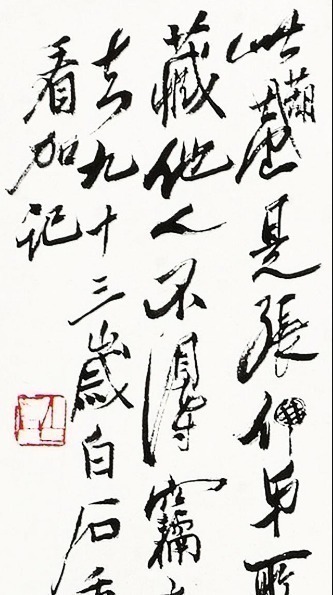 此葫蘆是張弟所
藏他人不得竊
去九十三歲白石重
看加記